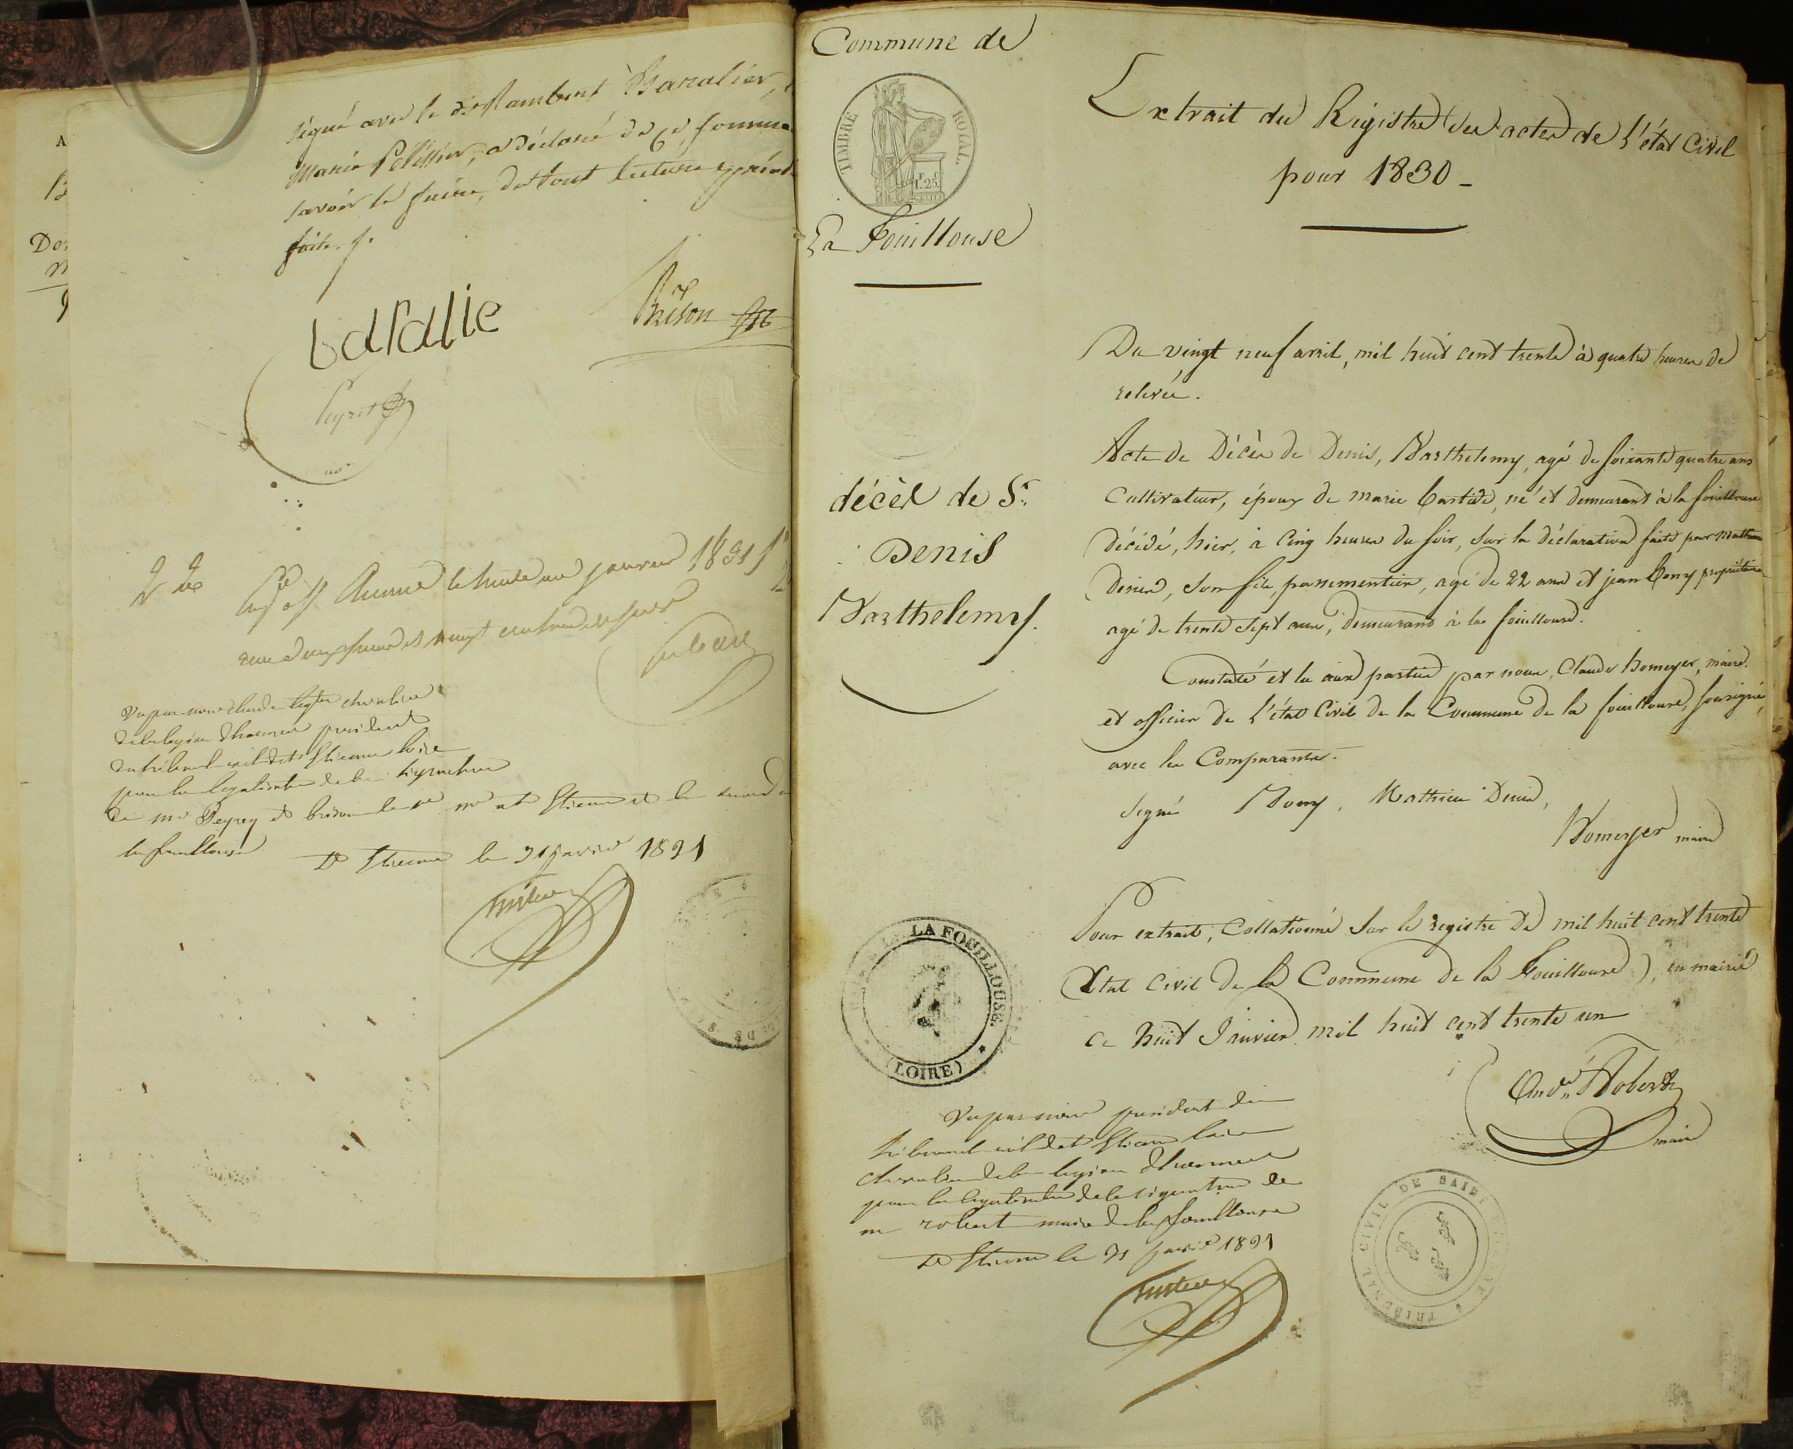 signé avec le dit Rambert Baralier,
Marie Pélissier, a déclaré de ce sommé
savoir le faire, du tout lecture
faite.
Brison
Peyret
2 de
janvier 1831
Vu par nous chevalier
de la légion d'honneur président
du tribunal civil de St Etienne Loire
pour la légalisation de la signature
de Mr Peyret et Brison
la fouillouse
St Etienne le 31 janvier 1831
Commune de
TIMBRE ROYAL
1F.25
La Fouillouse
décès de Sr.
Denis
Barthelemy.
Extrait du Régistre des actes de l'état Civil
pour 1830
Du vingt neuf avril, mil huit cent trente à quatre heures de
relevée.
Acte de Décès de Denis, Barthelemy, agé de soixante quatre ans
Cultivateur, époux de marie bastide, né et demeurant à la fouillouse
Décédé, hier, à Cinq heures du soir, sur la déclaration faite par Mathieu
Denis, son fils, passementier, agé de 22 ans et jean bony propriétaire
agé de trente sept ans, demeurans à la fouillouse.
Constaté et lu aux parties par nous, Claude bomeyer, maire
et officier de l'état Civil de la Commune de la fouillouse, soussigné,
avec les Comparants.
Signé Bony, Mathieu Denis,
Bomeyer maire
Pour extrait, Collationné sur le registre de mil huit cent trente
(Etat Civil de la Commune de la Fouillouse), en mairie
ce huit Janvier mil huit cent trente un
Robert
maire
LA FOUILLOUSE
(LOIRE)
Vu par nous président du
tribunal civil de St Etienne Loire
chevalier de la légion d'honneur
pour la légalisation de la signature de
mr robert maire de la fouillouse
St Etienne le 31 janvier 1831
TRIBUNAL CIVIL DE SAINT ETIENNE